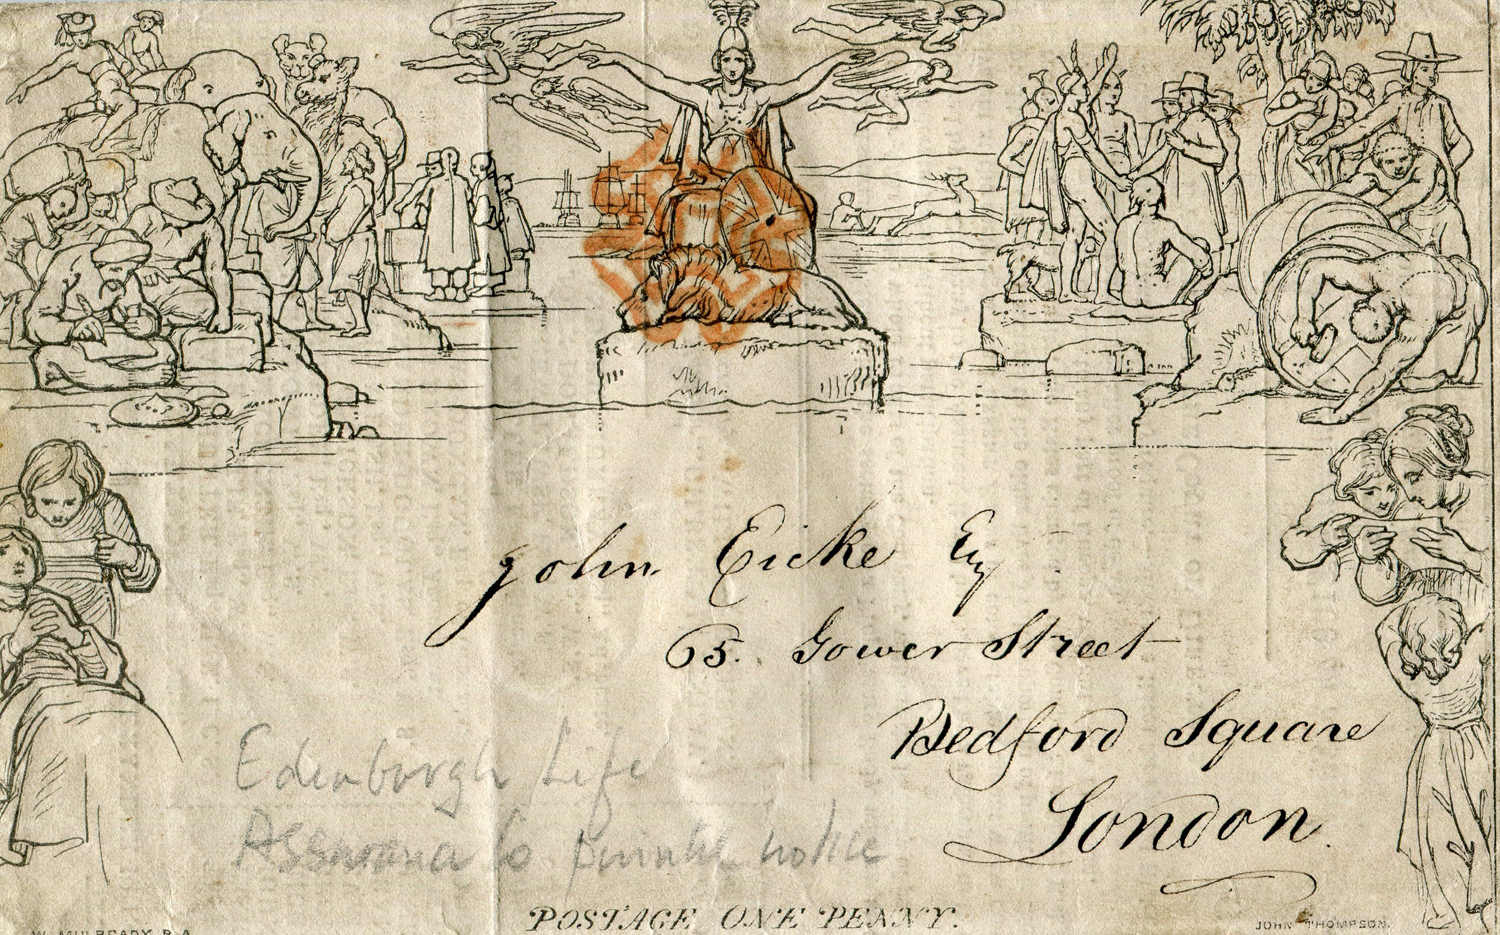 John Eicke Esq
65. Gower Street
Bedford Square
London.
Edinburgh Life
Assurance Co printed notice
POSTAGE ONE PENNY.
W. MULREADY. R.A.
JOHN THOMPSON.